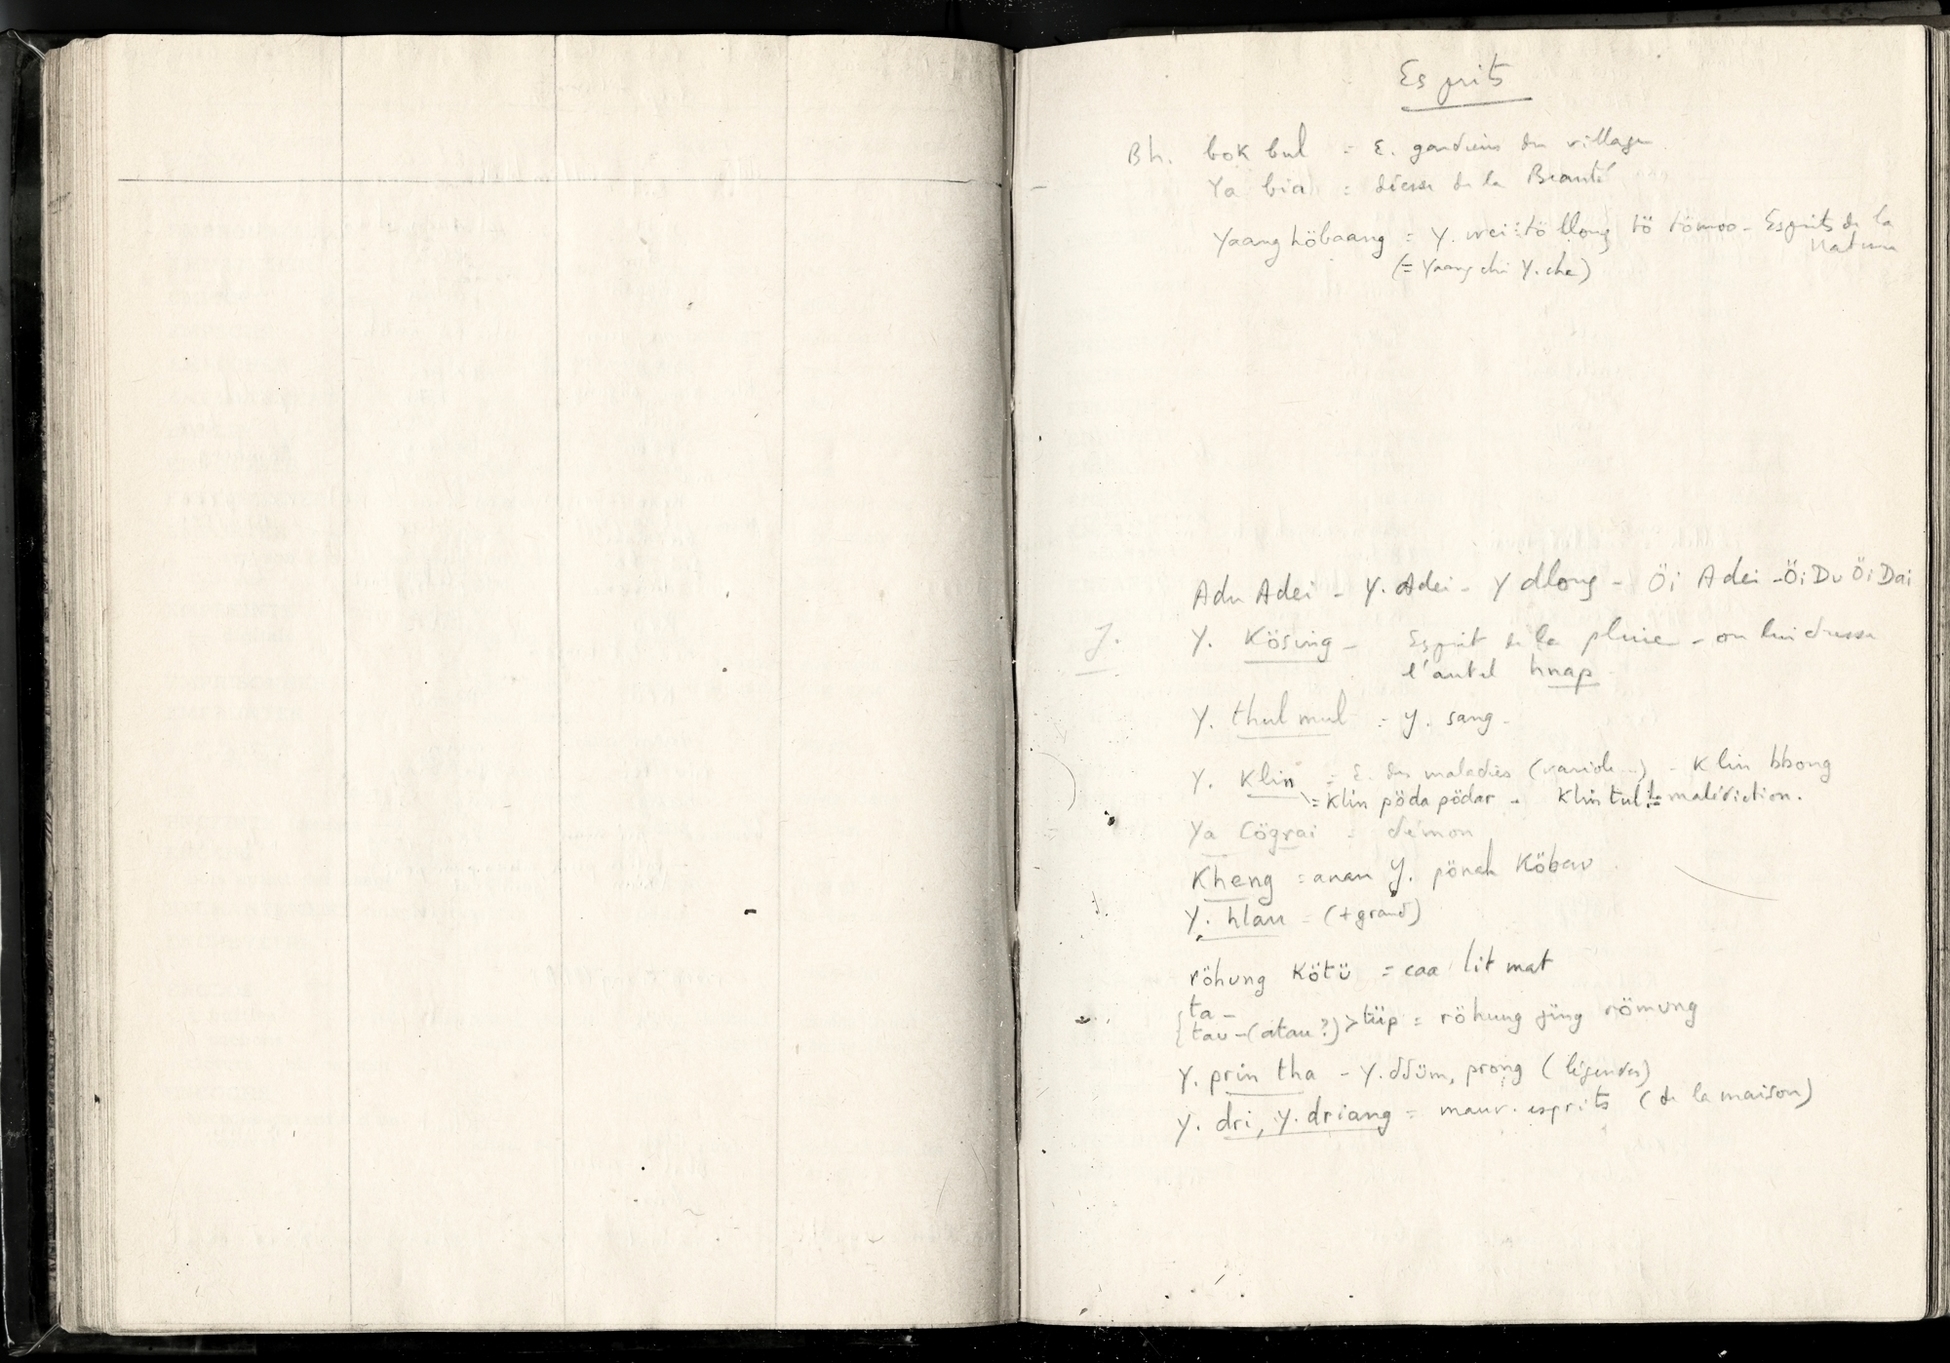 Esprits
Bh. bok bul = E. gardiens du village
Ya bia = déesse de la Beauté
Yaang höbaang = Y. wei tö llong tö tömoo - Esprits de la
Nature
(= Yaang chi Y. che)
Adu Adei - Y. Adei - Y dlong - Öi Adei - Öi Du Öi Dai
J. Y. Kösing - Esprit de la pluie - on lui dresse
l'autel hnap
Y. thul mul = Y. sang -
Y. Klin = E. des maladies (variole...) - Klin bbong
= Klin pöda pödar - Klin tul = malédiction.
Ya Cögrai = démon
Kheng = anan Y. pönah Köbau
Y. hlau = (+ grand)
röhung Kötü = caa lit mat
ta -
tau - (atau ?) > tüp = röhung jing römung
Y. prin tha - Y. ddüm, prong (légendes)
Y. dri, Y. driang = mauv. esprits (de la maison)